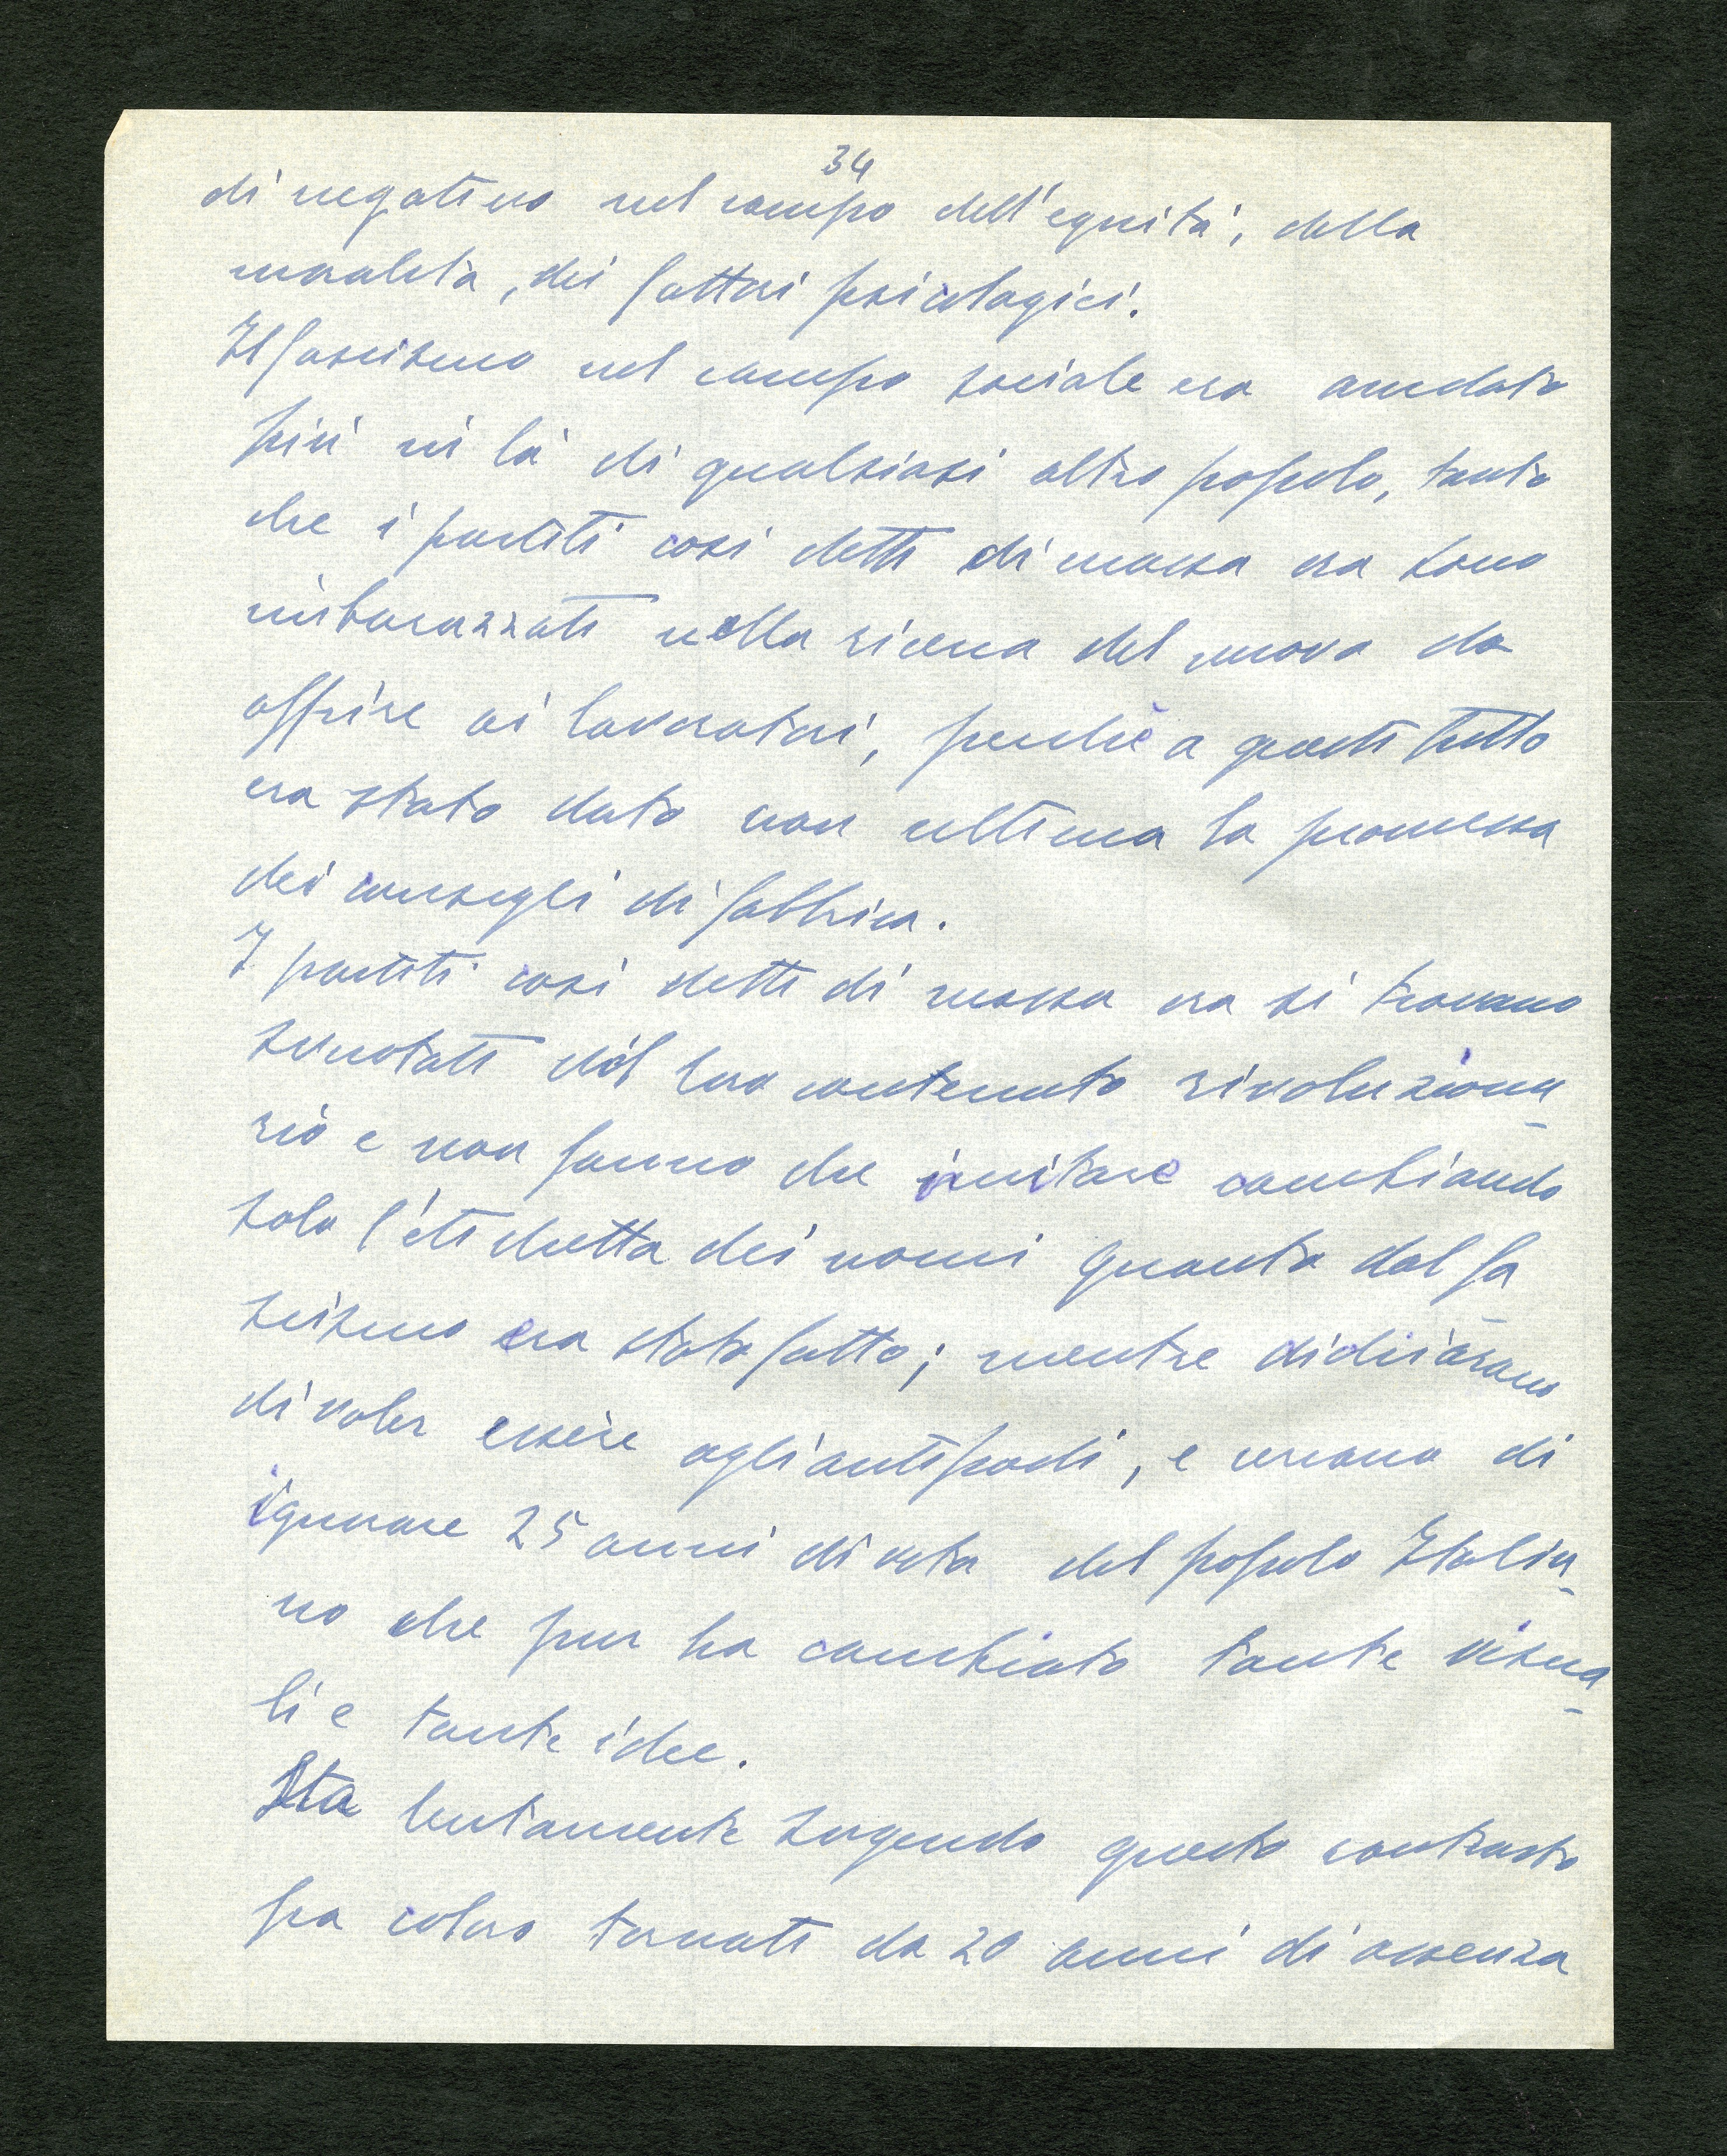 34
di negativo nel campo dell'equità, della
moralità, dei fattori psicologici.
Il fascismo nel campo sociale era andato
più in là di qualsiasi altro popolo, tanto
che i partiti così detti di massa ora sono
imbarazzati nella ricerca del nuovo da
offrire ai lavoratori, perché a questi tutto
era stato dato non ultima la promessa
dei consigli di fabbrica.
I partiti così detti di massa ora si trovano
svuotati del loro contenuto rivoluziona-
rio e non fanno che imitare cambiando
solo l'etichetta dei nomi quanto dal fa-
scismo era stato fatto; mentre dichiarano
di voler essere agli antipodi, e cercano di
ignorare 25 anni di vita del popolo Italia-
no che pur ha cambiato tante visua-
li e tante idee.
Sta lentamente sorgendo questo contrasto
fra coloro tornati da 20 anni di assenza